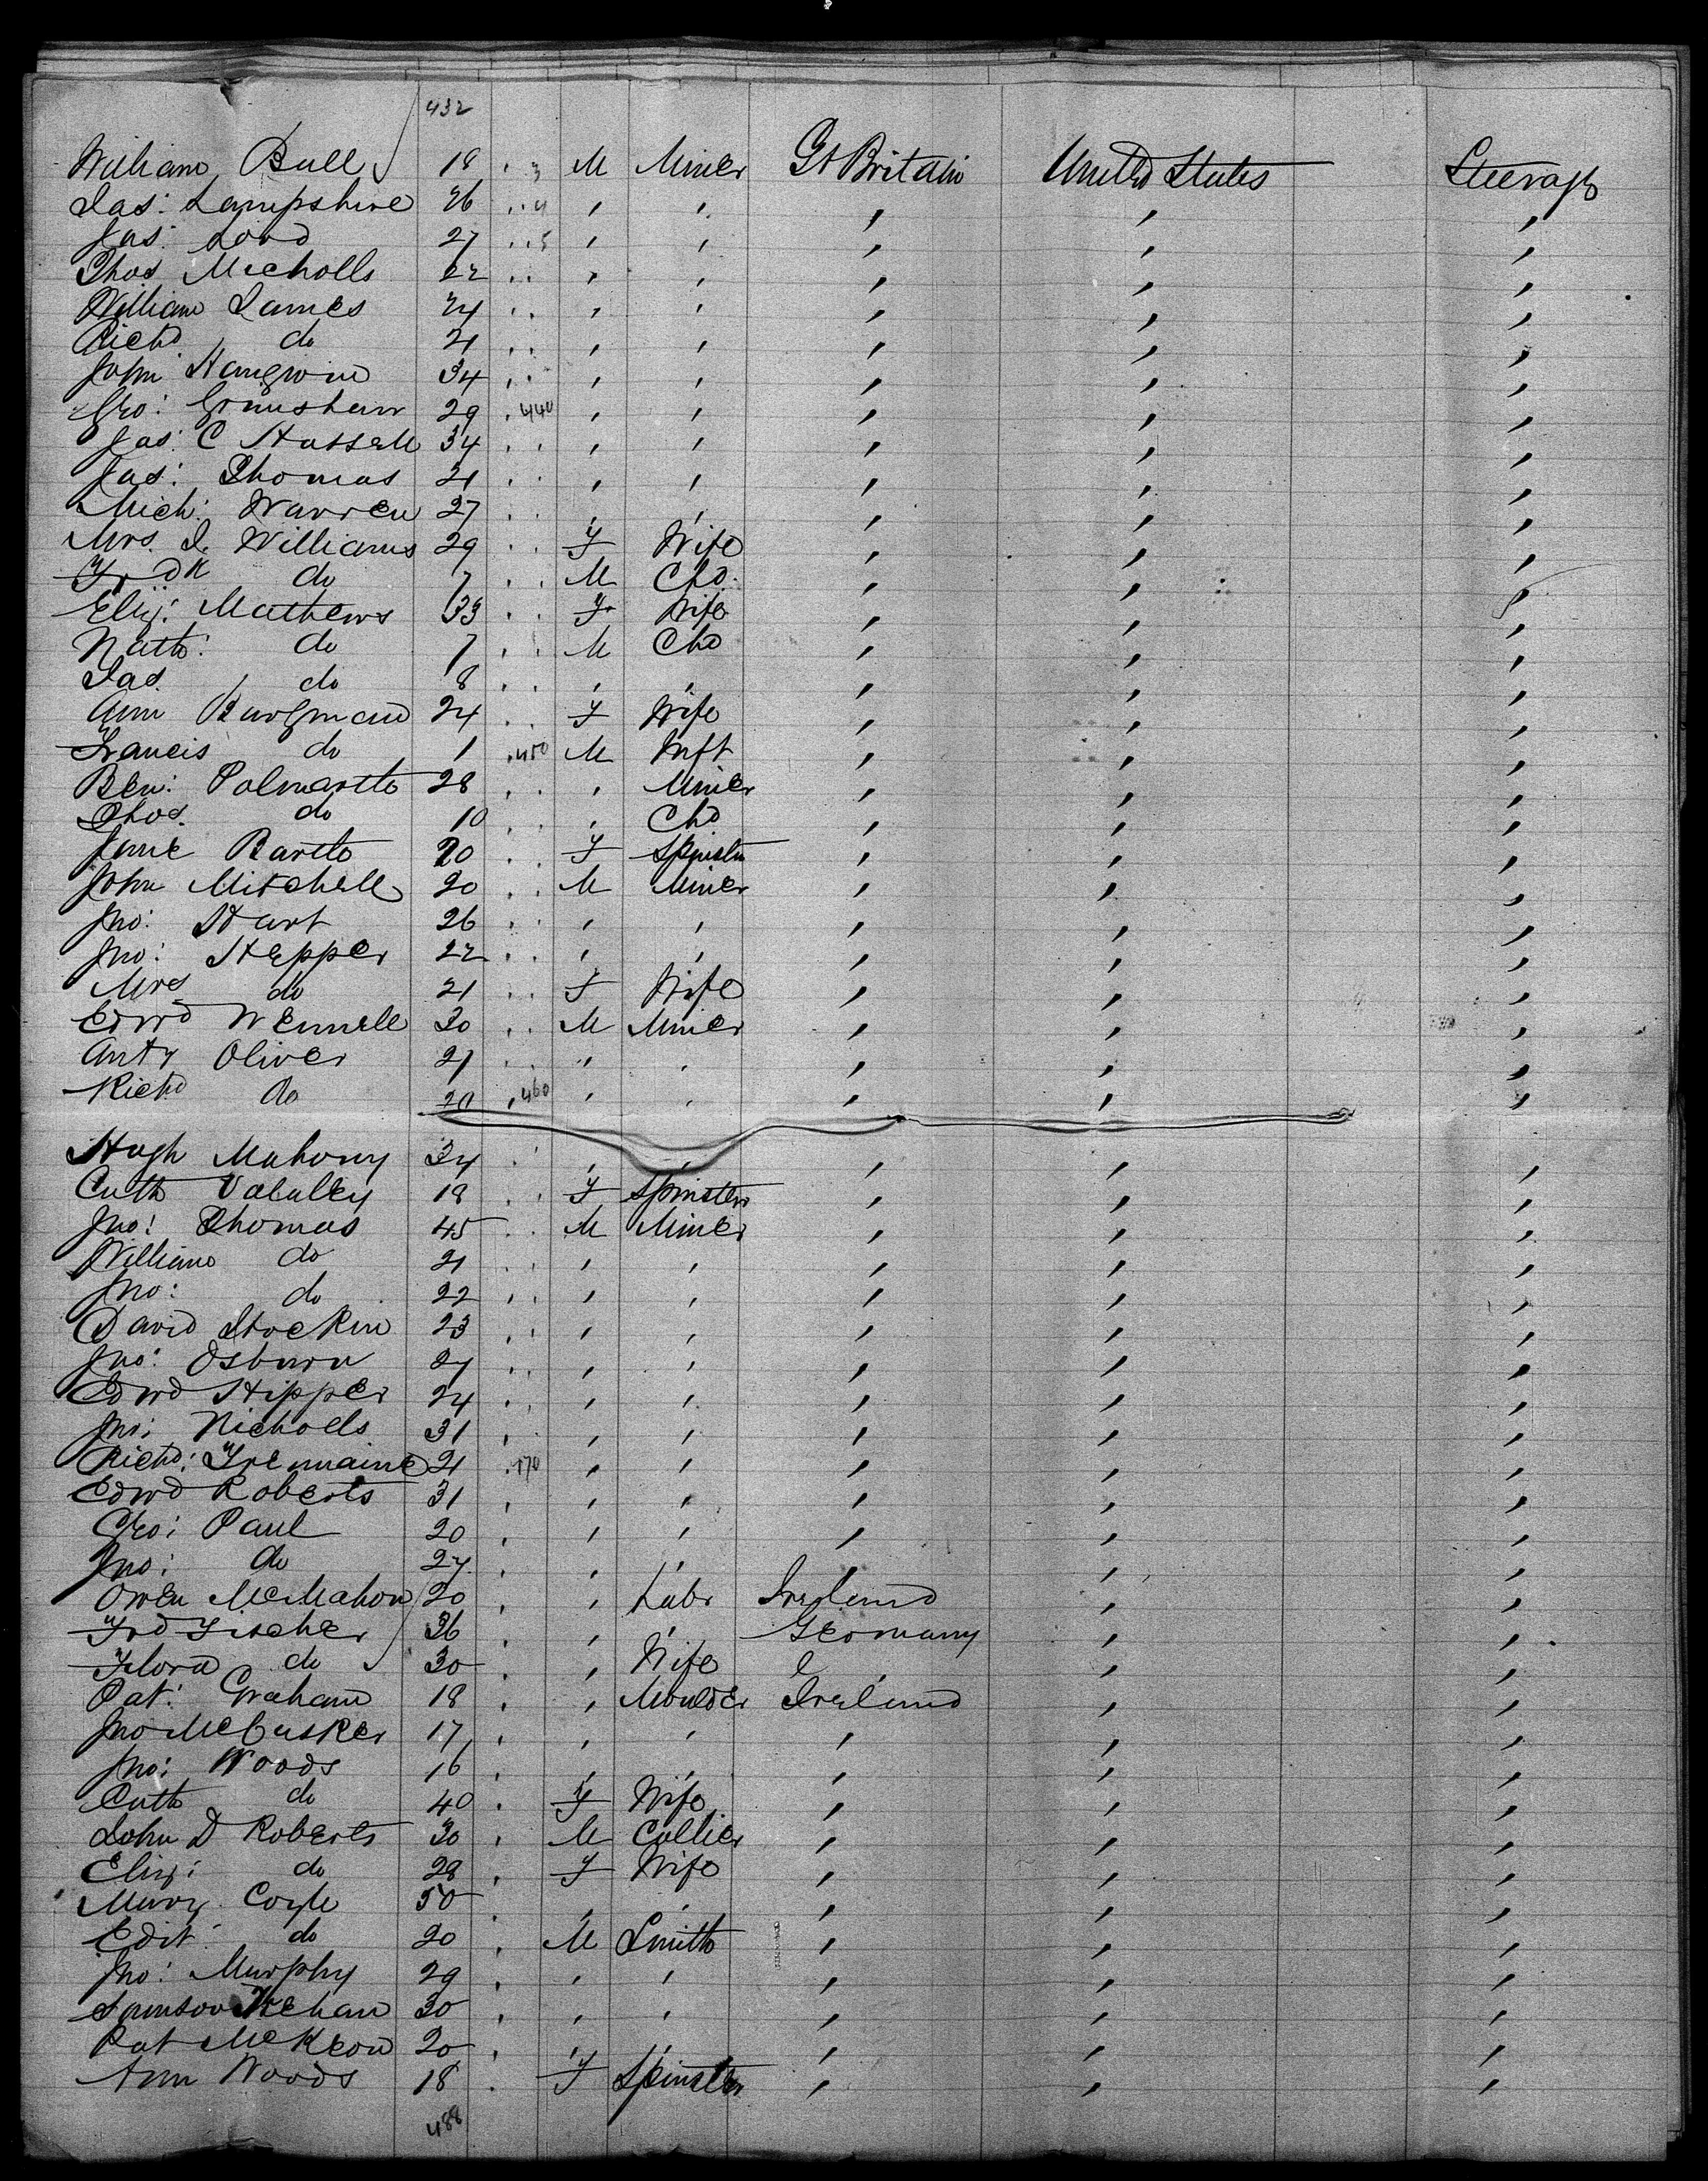 432
William Bull 18 3 M Miner Gt Britain United States Steerage
Jas: Lampshire 26 4 , , , , ,
Jas: Lord 27 5 , , , , ,
Thos Nicholls 22 , , , , ,
William James 24 , , , , ,
Richd do 21 , , , , ,
John 34 , , , , ,
Geo: Grimshaw 29 440 , , , , ,
Jas: C 34 , , , , ,
Jas: Thomas 21 , , , , ,
Mich: Warren 27 , , , , ,
Mrs. J. Williams 29 F Wife , , ,
Fredk do 7 M Chd. , , ,
Eliz: Mathews 33 F Wife , , ,
Nath: do 7 M Chd , , ,
Jas. do 8 , , , , ,
Ann 24 F Wife , , ,
Francis do 1 450 M Inft , , ,
Ben: 28 , Miner , , ,
Thos. do 10 , Chd , , ,
Jane 20 F Spinstr , , ,
John Mitchell 20 M Miner , , ,
Jno: Hart 26 , , , , ,
Jno: Hepper 22 , , , , ,
Mrs do 21 F Wife , , ,
Edwd 30 M Miner , , ,
Anty Oliver 21 , , , , ,
Richd do 20 460 , , , , ,
Hugh Mahony 34 , , , , ,
Cath 18 F Spinster , , ,
Jno: Thomas 45 M Miner , , ,
William do 21 , , , , ,
Jno: do 22 , , , , ,
David Stockin 23 , , , , ,
Jno: Osburn 27 , , , , ,
Edwd Hipper 24 , , , , ,
Jno: Nicholls 31 , , , , ,
Richd: Tremaine 21 470 , , , , ,
Edwd Roberts 31 , , , , ,
Geo: Paul 20 , , , , ,
Jno: do 27 , , , , ,
Owen McMahon 20 , Labr Ireland , ,
Frd Fischer 36 , , Germany , ,
Flora do 30 , Wife , , ,
Pat: Graham 18 , Moulder Ireland , ,
Jno McCusker 17 , , , , ,
Jno: Woods 16 , , , , ,
Cath do 40 F Wife , , ,
John D Roberts 30 M Collier , , ,
Eliz: do 28 F Wife , , ,
Mary Coyle 50 , , , , ,
Edit: do 20 M Smith , , ,
Jno: Murphy 29 , , , , ,
30 , , , , ,
Pat McKeon 20 , , , , ,
Ann Woods 18 F Spinster , , ,
488